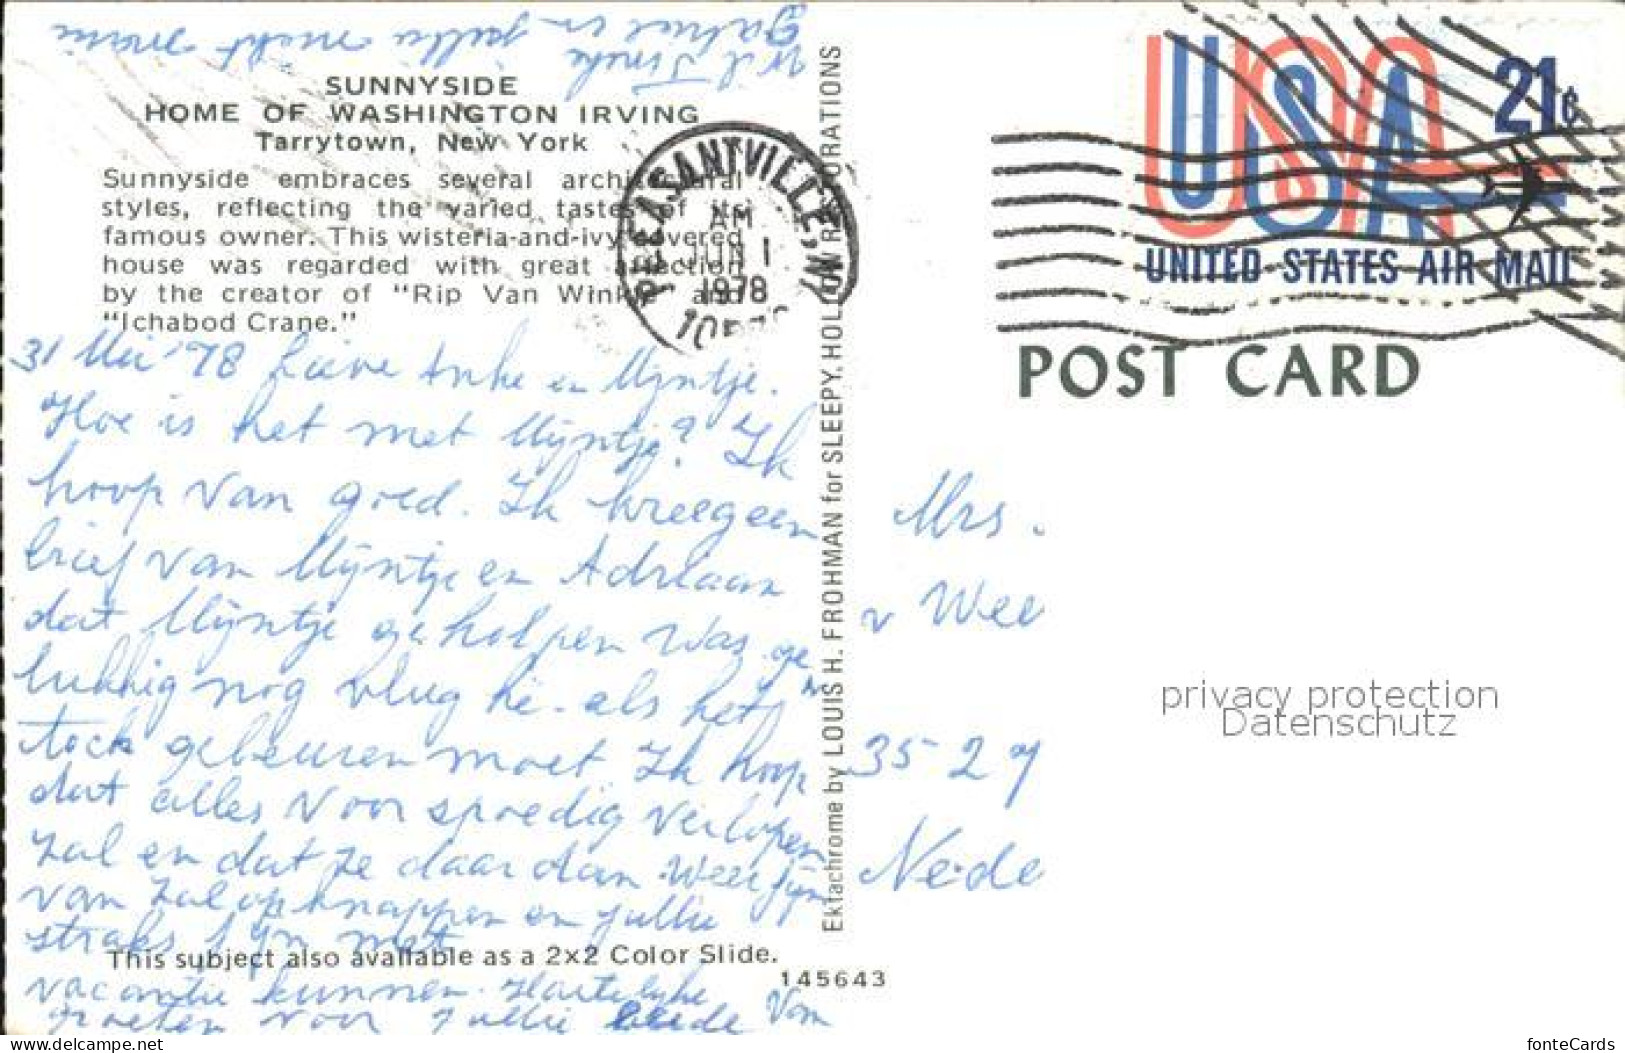 SUNNYSIDE
HOME OF WASHINGTON IRVING
Tarrytown, New York
Sunnyside embraces several architectural
styles, reflecting the varied tastes of its
famous owner. This wisteria-and-ivy covered
house was regarded with great affection
by the creator of "Rip Van Winkle" and
"Ichabod Crane."
31 Mei '78 Lieve Anke en Mijntje.
Hoe is het met Mijntje? Ik
hoop van goed. Ik kreeg een
brief van Mijntje en Adriaan
dat Mijntje geholpen was. ge
lukkig nog vlug hè. als het
toch gebeuren moet. Ik hoop
dat alles voor spoedig verlopen
zal en dat ze daar dan weer fijn
van zal opknappen en jullie
straks fijn met
vacantie kunnen. Hartelijke
groeten voor jullie beide van
This subject also available as a 2x2 Color Slide.
145643
Ektachrome by LOUIS H. FROHMAN for SLEEPY HOLLOW RESTORATIONS
PLEASANTVILLE, NY
AM
JUN 1
1978
USA
21¢
UNITED STATES AIR MAIL
POST CARD
Mrs.
v Wee
35-29
Nede
privacy protection
Datenschutz
www.delcampe.net
fonteCards